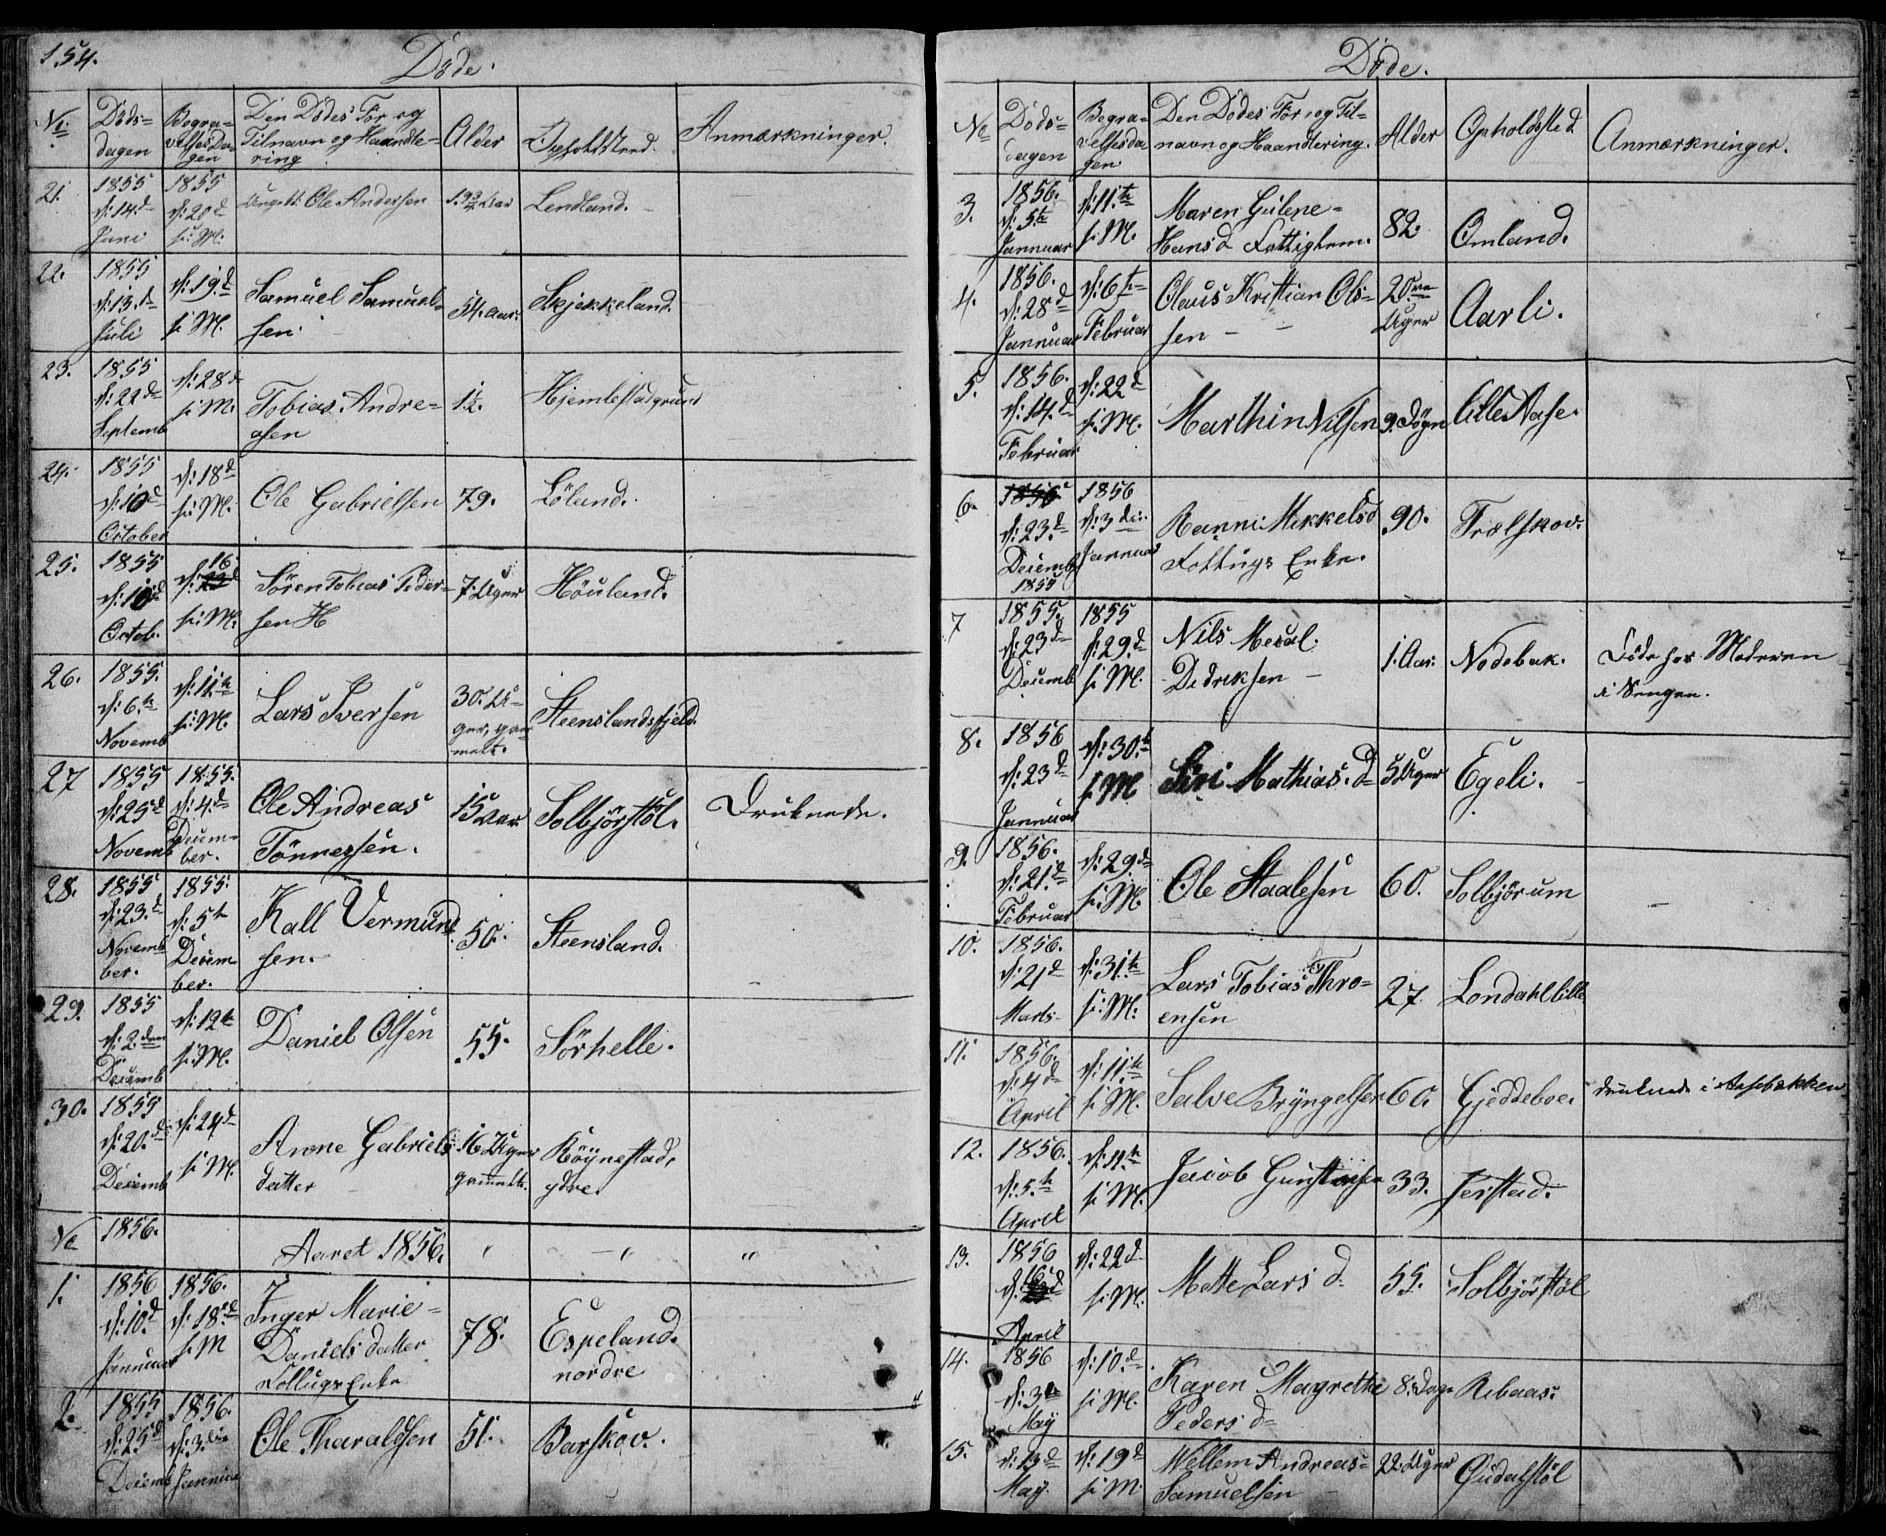 154.
Døde.
No Døds= dagen Begra= velses Da= gen Den Dødes For og Tilnavn og Haandte= ring Alder Opholdsted Anmærkninger.
21. 1855 d: 14d Juni 1855 d: 20d s: M: Ungk: Ole Andersen 19 3/4 Aar Lendland.
22. 1855 d: 13.d Juli d: 19.d s: M. Samuel Samuel= sen. 54. aar. Skjekkeland.
23. 1855 d: 22d Septemb d: 28d s: M. Tobias Andre= asen 1 1/2. Hjemlestadgrund
24. 1855 d: 10d October d: 18.d s: M. Ole Gabrielsen 79. Löland.
25. 1855 d: 10d Octob. d: 16 s: M. Sören Tobias Peder= sen H 7. Uger Höuland.
26. 1855. d: 6.te Novemb d: 11.te s: M. Lars Iversen 30. U= ger, gam= melt. Steenslandsfjeld.
27 1855 d: 25d Novemb 1855. d: 4.d Decem= ber. Ole Andreas Tönnesen. 15 Aar Solbjörstöl. Druknede.
28. 1855 d: 23.d Novemb ber. 1855. d: 5t Decem ber. Kall Vermund sen. 50. Steensland.
29. 1855 d: 2.den Decemb d: 12te s: M. Daniel Olsen 55. Sörhelle.
30. 1855 d: 20.d Decemb d: 24d s: M. Anne Gabriels datter 16 Uger gammelt. Röynestad, ydre.
No 1856. Aaret 1856. " — " "
1. 1856 d: 10.d Januar 1856. d: 18.d s: M Inger Marie= Daniels datter Lottugs Enke 78. Espeland. nordre
2. 1855 d: 25d Decemb 1856. d: 3.die Januar Ole Tharaldsen 51. Barskov.
Døde.
No Døds= dagen Begra= velses da gen Den Dødes For og Til= navn og Haandtering. Alder Opholdsted Anmærkninger.
3. 1856. d: 5te Januar d: 11.te s: M. Maren Gulene= Hans d Fattiglem. 82. Omland.
4. 1856. d: 28d Januar d: 6te Februar Olaus Kristian Ols= sen — 20 Uger Aarli.
5. 1856. d: 14.d Februar d: 22d s: M. Marthin Nilsen 9. Dögn lille Aase.
6. d: 23.d Decemb 1855 1856 d: 3 die Januar Ranni Mikkelsd Lottugs Enke. 90. Trælskov.
7 1855. d: 23d Decemb 1855 d: 29.d s: M. Nils Didriksen — 1. Aar. Nodebak. Döde hos Moderen i Sengen.
8. 1856 d: 23d Januar d: 30.te s: M Siri Mathias. d 5 Uger Egeli.
9. 1856. d: 21.d Februar d: 29.d s: M. Ole Staalesen 60. Solbjör um
10. 1856. d: 21d Marts d: 31.te s: M: Lars Tobias Thro= ensen 27. Londahl lille
11. 1856. d: 4d April d: 11.te s: M. Salve Bryngelsen 60. Gjeddeboe. druknede i Aasebækken
12. 1856. d: 5.te April d: 11.te s: M. Jacob Gunstensen 33. Jerstad.
13. 1856 d: 16 April d: 22d s: M. Mette Lars d 55. Solbjörstöl
14. 1856 d: 3d May d: 10.d s: M. Karen Magrethe Peders d= 8. Dage Ribaas.
15. d: 13d May. d: 19d s: M. Willem Andreas= Samuelsen 22. Uger Qudalstöl